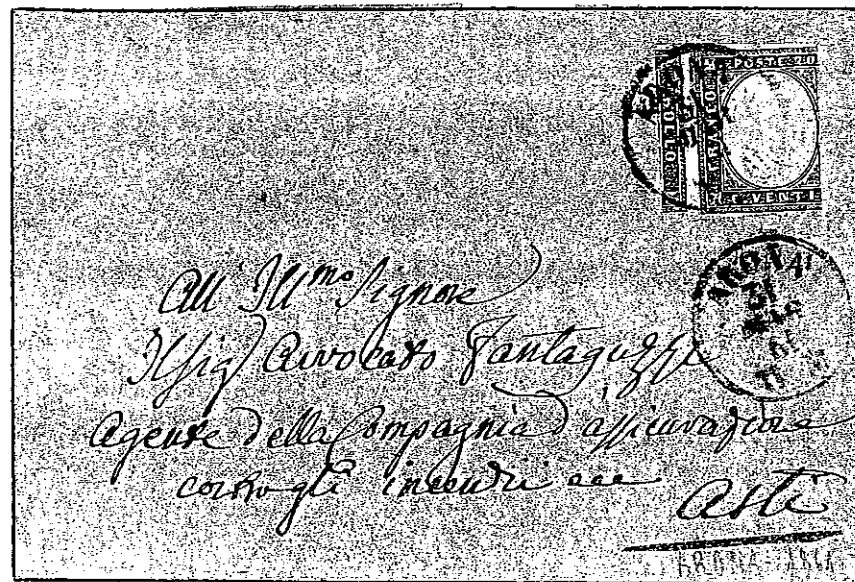 POSTE
BOLLO
FRANCO
BOLLO
C. VENTI
ARONA
31
All' Ill.mo Signore
Il Sig Avvocato Fantaguzzi
Agente della Compagnia d'assicurazione
contro gli incendi ecc
Asti